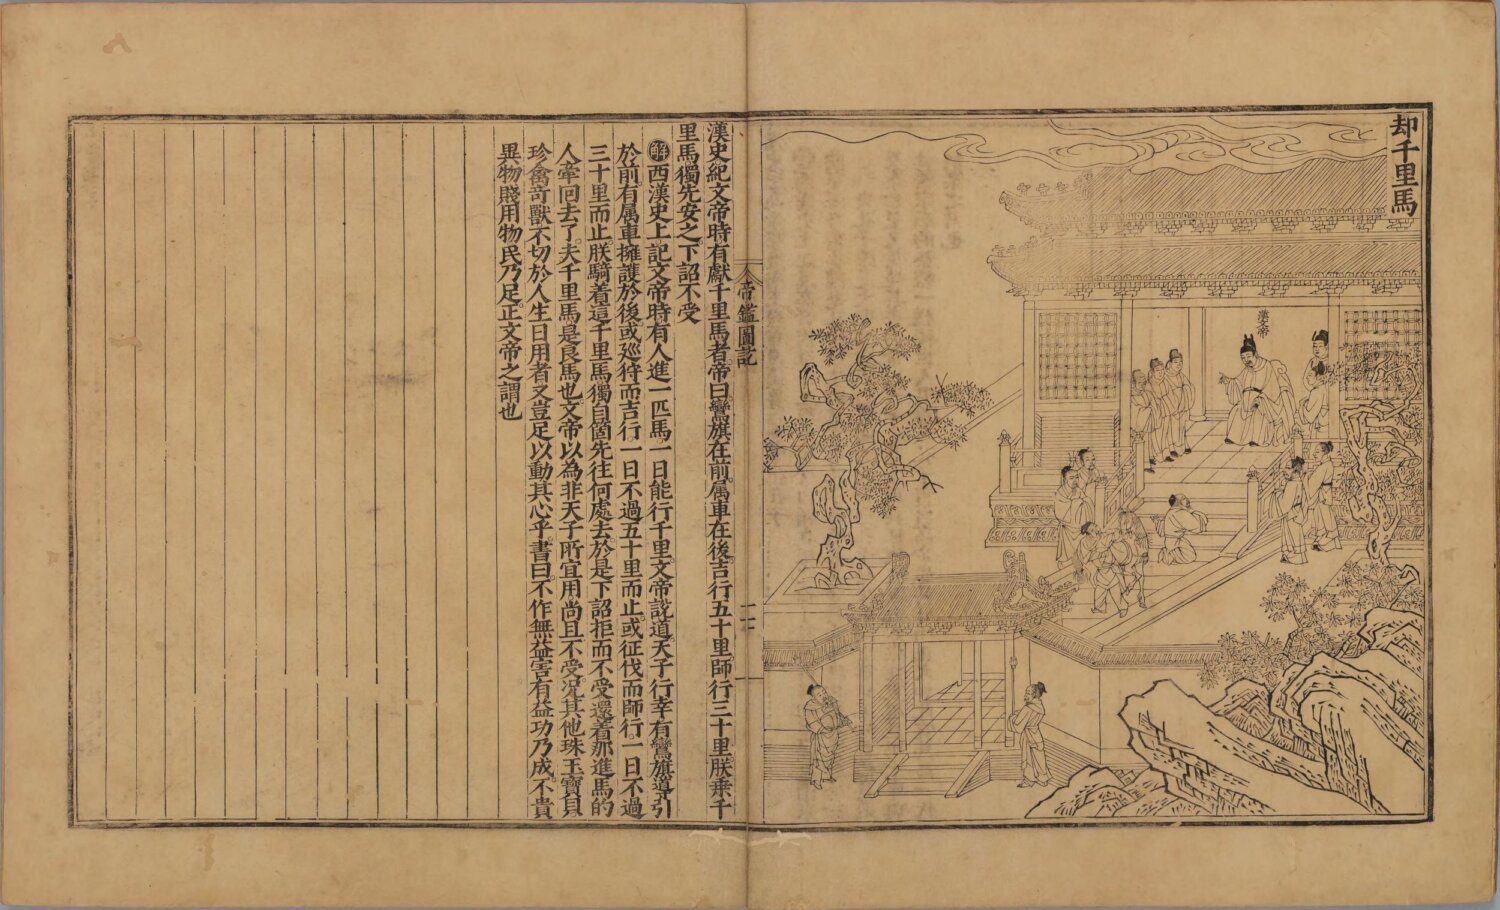 却千里馬
漢文帝
帝鑑圖說
漢史紀文帝時有獻千里馬者帝曰鸞旗在前属車在後吉行五十里師行三十里朕乗千
里馬獨先安之下詔不受
解西漢史上記文帝時有人進一匹馬一日能行千里文帝說道天子行幸有鸞旗導引
於前有属車擁護於後或廵狩而吉行一日不過五十里而止或征伐而師行一日不過
三十里而止朕騎着這千里馬獨自箇先往何處去於是下詔拒而不受還着那進馬的
人牽回去了夫千里馬是良馬也文帝以為非天子所宜用尚且不受况其他珠玉寶貝
珍禽奇獸不切於人生日用者又豈足以動其心乎書曰不作無益害有益功乃成不貴
異物賤用物民乃足正文帝之謂也